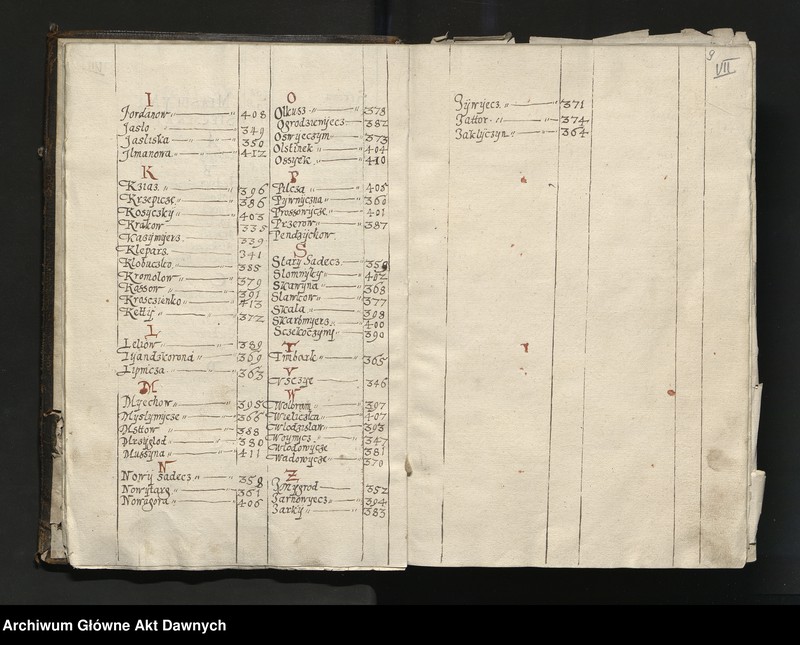 I
Jordanow 408
Jaslo 349
Jasliska 350
Ilmanowa 412
K
Kziaz 396
Krzepicze 386
Kosyczky 403
Krakow 335
Kazymyers 339
Klepars 341
Klobuczko 385
Kromolow 379
Kassow 391
Krosczienko 413
Kettij 372
L
Leliow 389
Lyandzkorona 369
Lipnicza 363
M
Myechow 395
Myslymycze 366
Msttow 388
Mrzyglod 380
Mussyna 411
N
Nowy Sadecz 358
Nowytarg 361
Nowagora 406
O
Olkusz 378
Ogrodzienyecz 382
Oswyeczym 373
Olstinek 404
Ossyek 410
P
Pilcza 405
Pywnyczna 360
Prossowycze 401
Przerow 387
Pendzychow
S
Stary Sadecz 359
Slomnyky 402
Skawyna 368
Slawkow 377
Skala 398
Skarbmyers 400
Sczekoczyny 390
T
Timbark 365
V
Vsczye 346
W
Wolbram 397
Wieliczka 407
Wlodzislaw 393
Woynycz 347
Wlodowycze 381
Wadowycze 370
Z
Zmygrod 352
Zarnowyecz 394
Zarky 383
9
VII
Zywyecz 371
Zattor 374
Zaklyczyn 364
Archiwum Główne Akt Dawnych